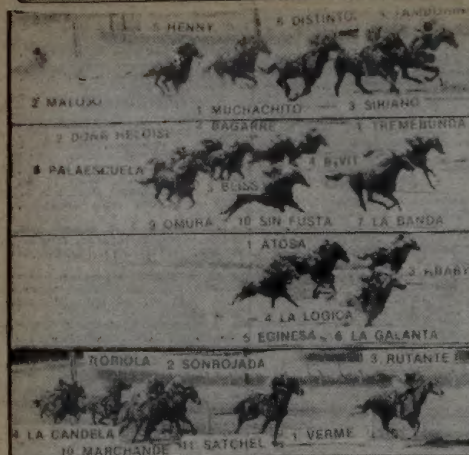 5 HENNY 6 DISTINTO
2 MALUXI 1 MUCHACHITO 3 SIRIANO
BAGARRE 1 TREMEBUNDA
8 PALAESCUELA 4 BIVIT
3 BLISS
9 OMURA 10 SIN FUSTA 7 LA BANDA
1 ATOSA
4 LA LOGICA
5 EGINESA 6 LA GALANTA
7 ORIOLA 2 SONROJADA 3 RUTANTE
4 LA CANDELA 11 SATCHEL 1 VERME
10 MARCHANDE